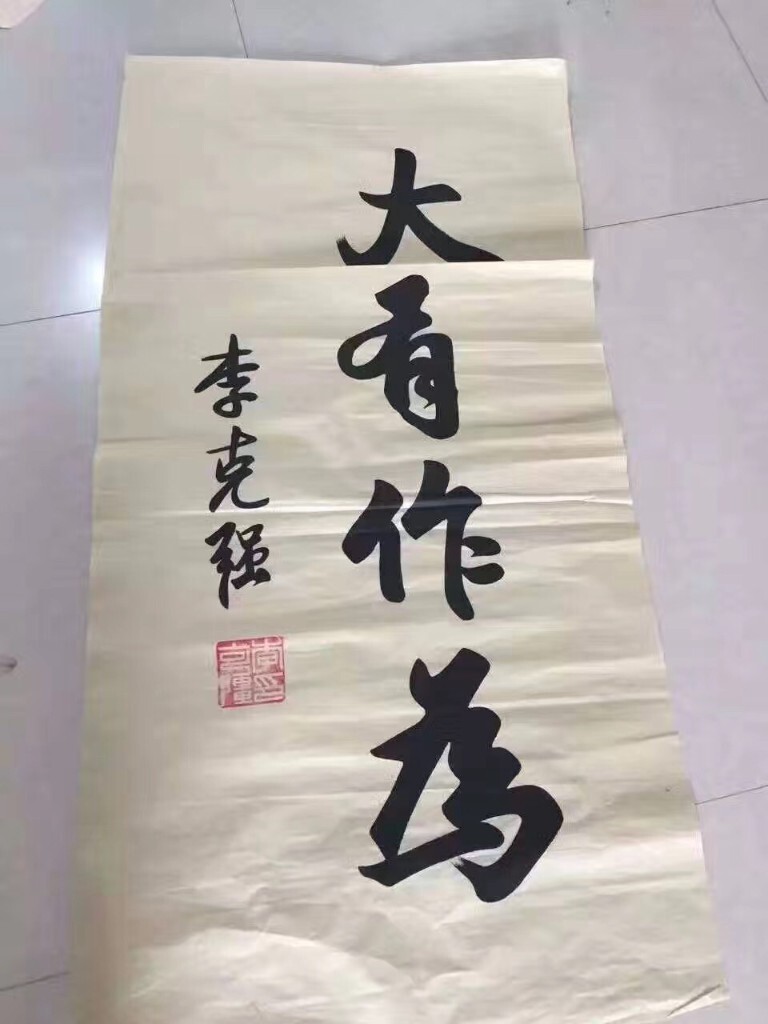 大有作為
李克强